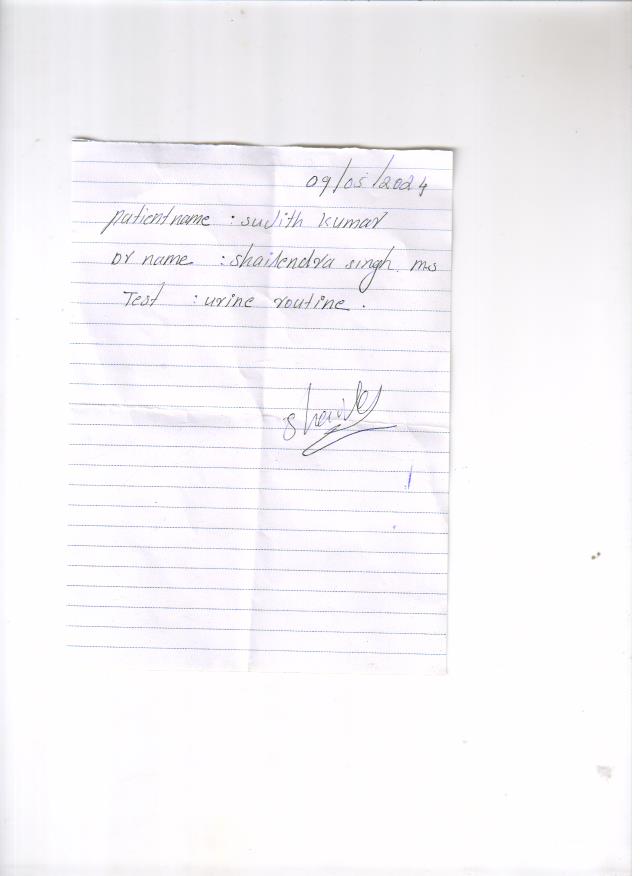 09/05/2024
patient name : sudith kumar
Dr name : shailendra singh. ms
Test : urine routine .